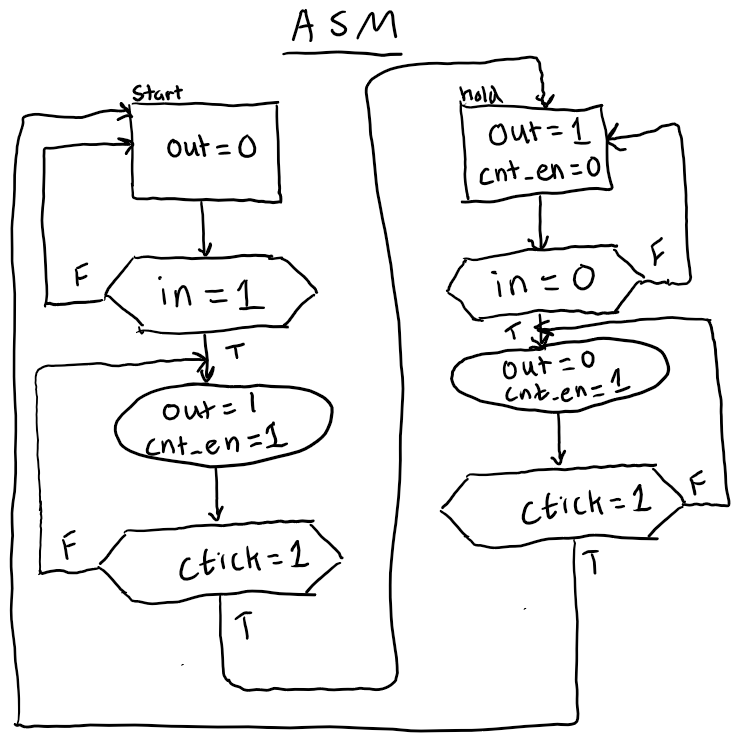 ASM
Start
out = 0
in = 1
F
T
out = 1
cnt_en = 1
ctick = 1
F
T
hold
out = 1
cnt_en = 0
in = 0
F
T
out = 0
cnt_en = 1
ctick = 1
F
T